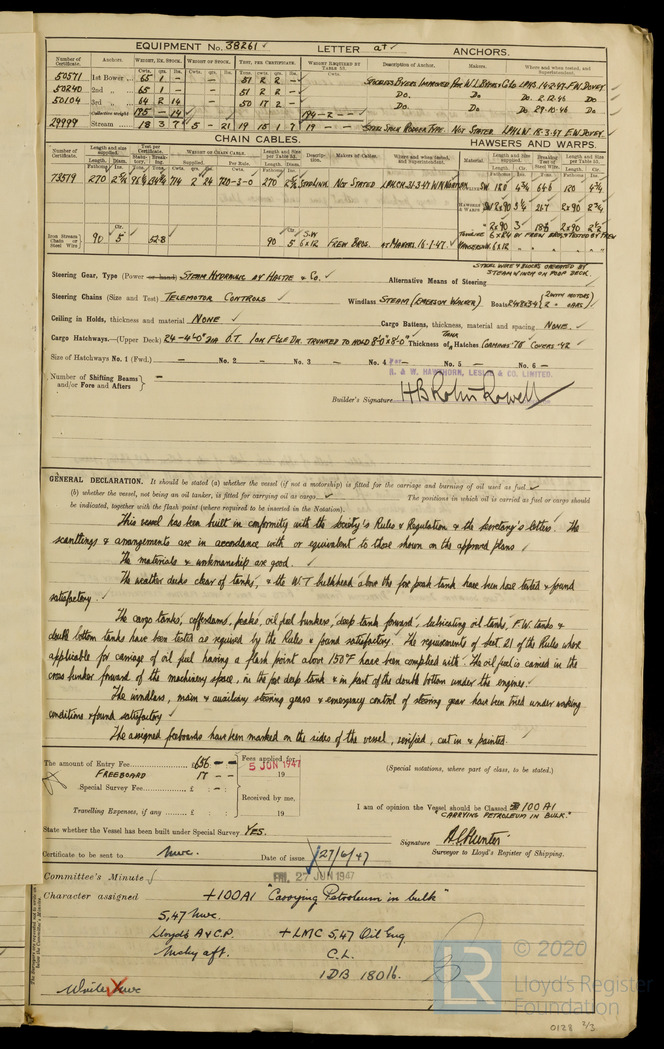 EQUIPMENT No. 38261 LETTER a† ANCHORS.
Number of Certificate. Anchors. Weight, Ex. Stock. Weight of Stock. Test, per Certificate. Weight Required by Table 53. Description of Anchor. Makers. Where and when tested, and Superintendent.
50571 1st Bower 65 1 - - 51 2 2 - Stockless Byers Improved Pat. W.L. Byers & Co LPHS. 14.2.47. F.W. Dovey
50240 2nd 65 1 - - 51 2 2 - Do. Do Do. 2.12.46 Do
50104 3rd 64 2 14 - 50 17 2 - Do. Do Do. 29.10.46 Do
Collective weight 195 - 14 194 - 2 -
29999 Stream 18 3 7 5 - 21 19 15 1 7 19 - - Not Stated LPH.W 18.3.47 E.W. Dovey
CHAIN CABLES. HAWSERS AND WARPS.
Number of Certificate. Length and size supplied. Test per Certificate. Weight of Chain Cable. Length and Size per Table 53. Description. Makers of Cables. Where and when tested, and Superintendent. Material. Length and Size supplied. Breaking Test of Steel Wire. Length and Size per Table 53.
Length. Diam. Supplied. Per Rule. Length. Diam. Fathoms Cir. Tons. Fathoms Cir.
73579 270 714 2 24 720-3-0 270 Stud Link Not Stated S.W. 120 4¾
S.W 2x90 3¼ 26.7 2x90 2¾
2½
" 2x90 3 2x90
Iron Stream Chain or Steel Wire 90 5 52.8 90 5 S.W 6x12 Frew Bros. at Makers. 16.1.47.
Steering Gear, Type (Power or hand) Steam Hydraulic by Hastie & Co. Alternative Means of Steering Steel wire & blocks operated by steam winch on poop deck.
Steering Chains (Size and Test) Telemotor Controls Windlass Steam (Emerson Walker) Boats
Ceiling in Holds, thickness and material None Cargo Battens, thickness, material and spacing None.
Cargo Hatchways.—(Upper Deck) 24-4'0" dia O.T. 1 on F'cle Dk. trunked to hold 8'.0"x8'.0" Thickness of Tank Hatches Coamings .78 Covers .42
Size of Hatchways No. 1 (Fwd.) — No. 2 — No. 3 — No. 4 — No. 5 — No. 6 —
Number of Shifting Beams and/or Fore and Afters —
R. & W. HAWTHORN, LESLIE & CO. LIMITED.
Builder's Signature H B Robin Rowell
GENERAL DECLARATION. It should be stated (a) whether the vessel (if not a motorship) is fitted for the carriage and burning of oil used as fuel
(b) whether the vessel, not being an oil tanker, is fitted for carrying oil as cargo. The positions in which oil is carried as fuel or cargo should
be indicated, together with the flash point (where required to be inserted in the Notation).
This vessel has been built in conformity with the Society's Rules & Regulation & the Secretary's letters. The
scantlings & arrangements are in accordance with or equivalent to those shown on the approved plans
The materials & workmanship are good.
The weather decks clear of tanks, & the W.T bulkhead above the fore peak tank have been hose tested & found
satisfactory.
The cargo tanks, cofferdams, peaks, oil fuel bunkers, deep tank forward, lubricating oil tanks, F.W. tanks &
double bottom tanks have been tested as required by the Rules & found satisfactory. The requirements of Sect. 21 of the Rules where
applicable for carriage of oil fuel having a flash point above 150°F have been complied with. The oil fuel is carried in the
cross bunker forward of the machinery space, in the for deep tank & in part of the double bottom under the engines.
The windlass, main & auxiliary steering gears & emergency control of steering gear have been tried under working
conditions & found satisfactory
The assigned freeboards have been marked on the sides of the vessel, verified, cut in & painted.
The amount of Entry Fee £656 - - Fees applied for, 5 JUN 1947
FREEBOARD 17 - - 19
Special Survey Fee £ : - : (Special notations, where part of class, to be stated.)
Received by me,
Travelling Expenses, if any £ : : 19
I am of opinion the Vessel should be Classed 100 A1
"CARRYING PETROLEUM IN BULK."
State whether the Vessel has been built under Special Survey YES.
Signature
Surveyor to Lloyd's Register of Shipping.
Certificate to be sent to Nwc. Date of issue 27/6/47
Committee's Minute FRI. 27 JUN 1947
Character assigned +100A1 "Carrying Petroleum in bulk"
5,47 Nwc.
Lloyd's A & C.P. + LMC 5,47 Oil Eng.
Mchy aft. C.L.
1DB 180 lb.
Write Nwc
LR
© 2020
Lloyd's Register
Foundation
0128 2/3